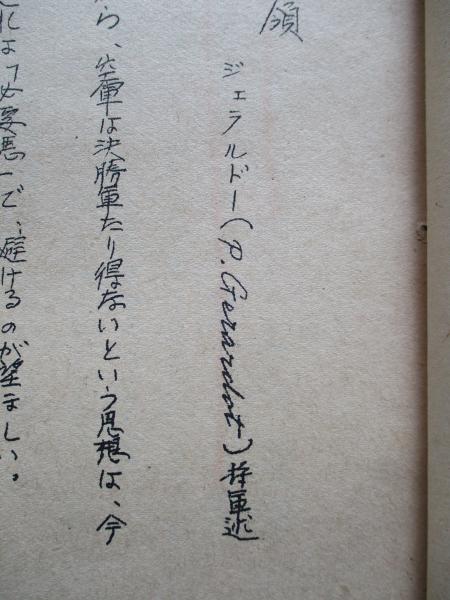 領
ジェラルドー(P. Gerardot)将軍述
ら、空軍は決勝軍たり得ないという思想は、今
れは「必要悪」で、避けるのが望ましい。